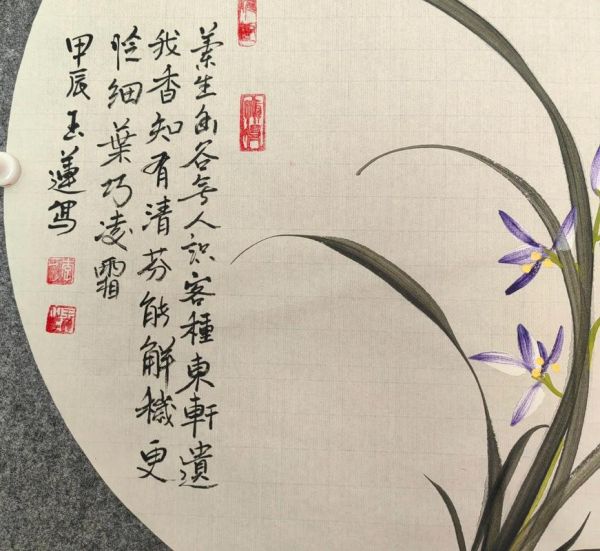 兰生幽谷无人识客種東軒遺
我香知有清芬能解穢更
怜细葉巧凌霜
甲辰玉蓮寫